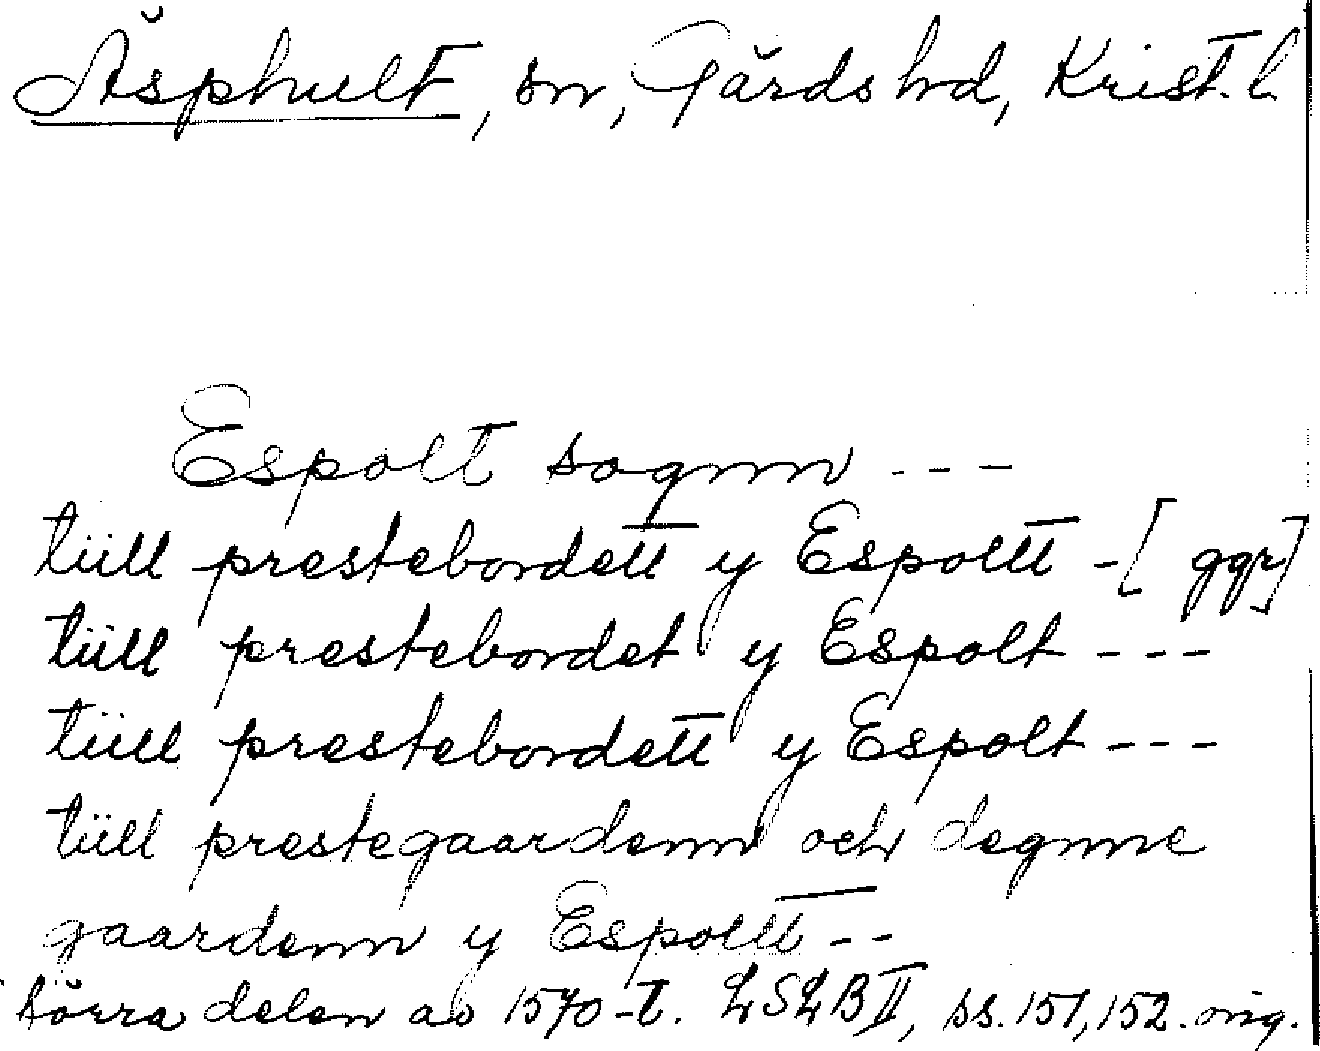 Äsphult, sn, Gärds hd, Krist. l.
Espolt sognn ---
tiill prestebordett y Espoltt -[ ggr]
tiill prestebordet y Espolt ---
tiill prestebordett y Espolt ---
tiill prestegaardenn och degnne
gaardenn y Espoltt --
Södra delen av 1570-t. LSLB II, ss. 151, 152. orig.